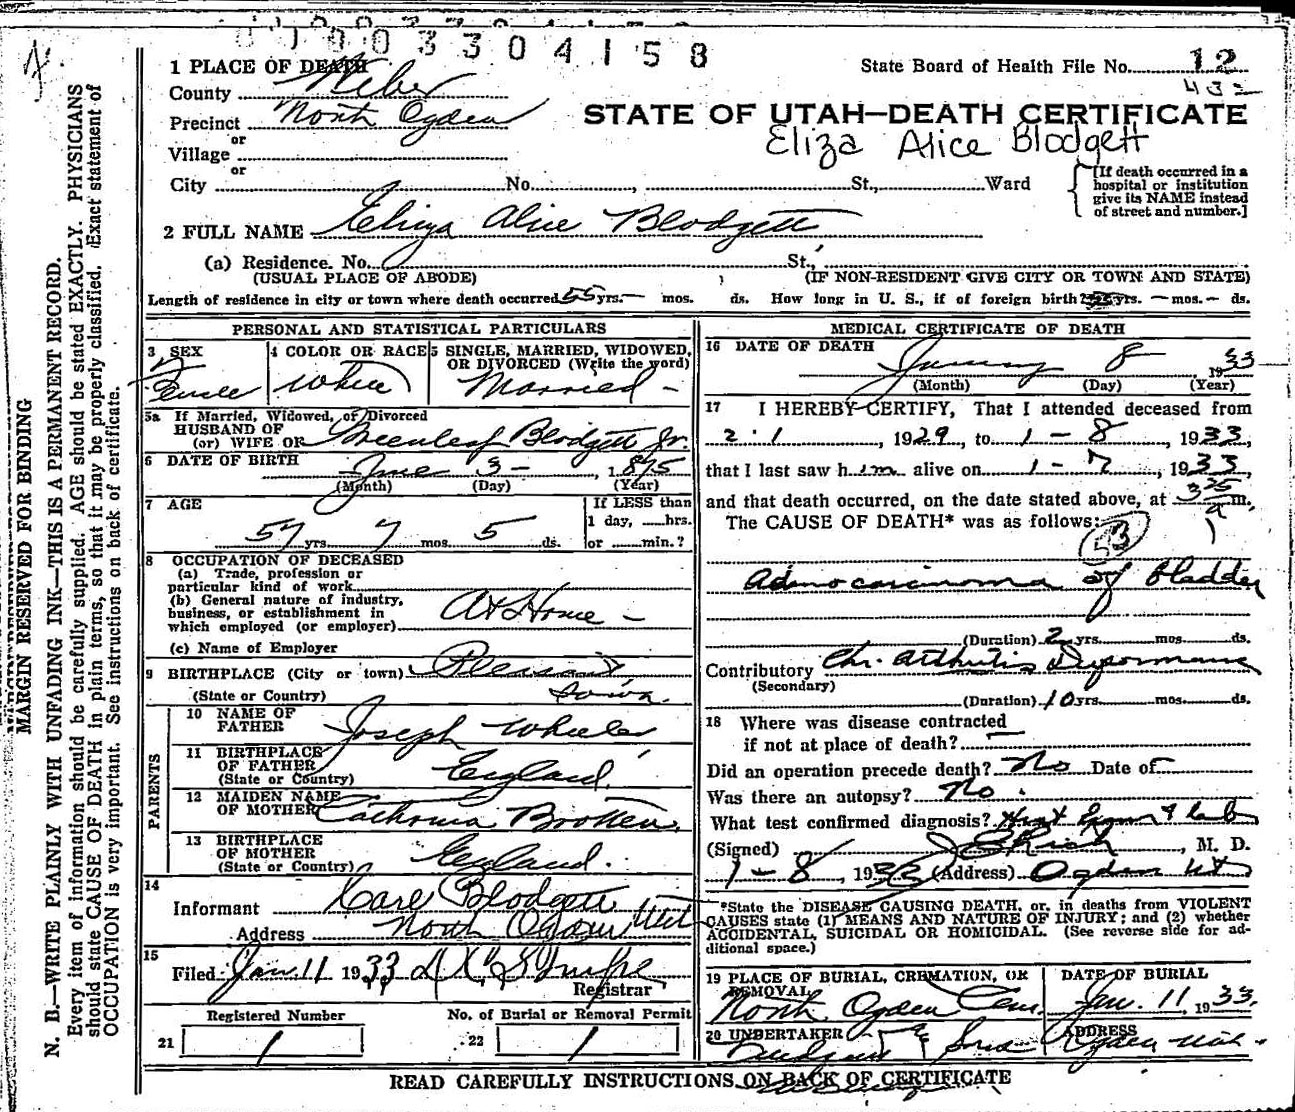 003304158
1 PLACE OF DEATH
County Weber
Precinct North Ogden
or
Village
or
City No. , St., Ward
State Board of Health File No. 12
432
STATE OF UTAH—DEATH CERTIFICATE
Eliza Alice Blodgett
[If death occurred in a
hospital or institution
give its NAME instead
of street and number.]
2 FULL NAME Eliza Alice Blodgett
(a) Residence. No. St.,
(USUAL PLACE OF ABODE) (IF NON-RESIDENT GIVE CITY OR TOWN AND STATE)
Length of residence in city or town where death occurred 55 yrs. — mos. ds. How long in U. S., if of foreign birth? yrs. — mos. — ds.
PERSONAL AND STATISTICAL PARTICULARS
3 SEX
Female
4 COLOR OR RACE
White
5 SINGLE, MARRIED, WIDOWED,
OR DIVORCED (Write the word)
Married —
5a If Married, Widowed, or Divorced
HUSBAND OF
(or) WIFE OF Greenleaf Blodgett Jr.
6 DATE OF BIRTH
June 3 - , 1875
(Month) (Day) (Year)
7 AGE
57 yrs. 7 mos. 5 ds.
If LESS than
1 day, hrs.
or min.?
8 OCCUPATION OF DECEASED
(a) Trade, profession or
particular kind of work
(b) General nature of industry,
business, or establishment in
which employed (or employer)
At Home —
(c) Name of Employer
9 BIRTHPLACE (City or town) Pleasant
(State or Country) Iowa.
PARENTS
10 NAME OF
FATHER Joseph Wheeler
11 BIRTHPLACE
OF FATHER
(State or Country) England.
12 MAIDEN NAME
OF MOTHER
13 BIRTHPLACE
OF MOTHER
(State or Country) England.
14
Informant Karl Blodgett
Address North Ogden Utah
15
Filed Jan. 11 1933
Registrar
Registered Number
21 1
No. of Burial or Removal Permit
22 1
MEDICAL CERTIFICATE OF DEATH
16 DATE OF DEATH
January 8 1933
(Month) (Day) (Year)
17 I HEREBY CERTIFY, That I attended deceased from
2 · 1 , 1929, to 1 - 8 , 1933,
that I last saw him alive on 1 - 7 , 1933
and that death occurred, on the date stated above, at 3 25 a m.
The CAUSE OF DEATH* was as follows:
53
Adenocarcinoma of bladder
(Duration) 2 yrs. mos. ds.
Contributory Chr. arthritis Deformans
(Secondary)
(Duration) 10 yrs. mos. ds.
18 Where was disease contracted
if not at place of death? —
Did an operation precede death? No Date of —
Was there an autopsy? No .
What test confirmed diagnosis? Hist Exam & Lab
(Signed) Rich , M. D.
1 - 8 , 193 (Address) Ogden Ut
*State the DISEASE CAUSING DEATH, or, in deaths from VIOLENT
CAUSES state (1) MEANS AND NATURE OF INJURY; and (2) whether
ACCIDENTAL, SUICIDAL OR HOMICIDAL. (See reverse side for ad-
ditional space.)
19 PLACE OF BURIAL, CREMATION, OR
REMOVAL
North Ogden Cem.
DATE OF BURIAL
Jan. 11, 1933.
20 UNDERTAKER
& Sons
ADDRESS
Ogden Utah.
READ CAREFULLY INSTRUCTIONS ON BACK OF CERTIFICATE
MARGIN RESERVED FOR BINDING
N. B.—WRITE PLAINLY WITH UNFADING INK—THIS IS A PERMANENT RECORD.
Every item of information should be carefully supplied. AGE should be stated EXACTLY. PHYSICIANS
should state CAUSE OF DEATH in plain terms, so that it may be properly classified. Exact statement of
OCCUPATION is very important. See instructions on back of certificate.